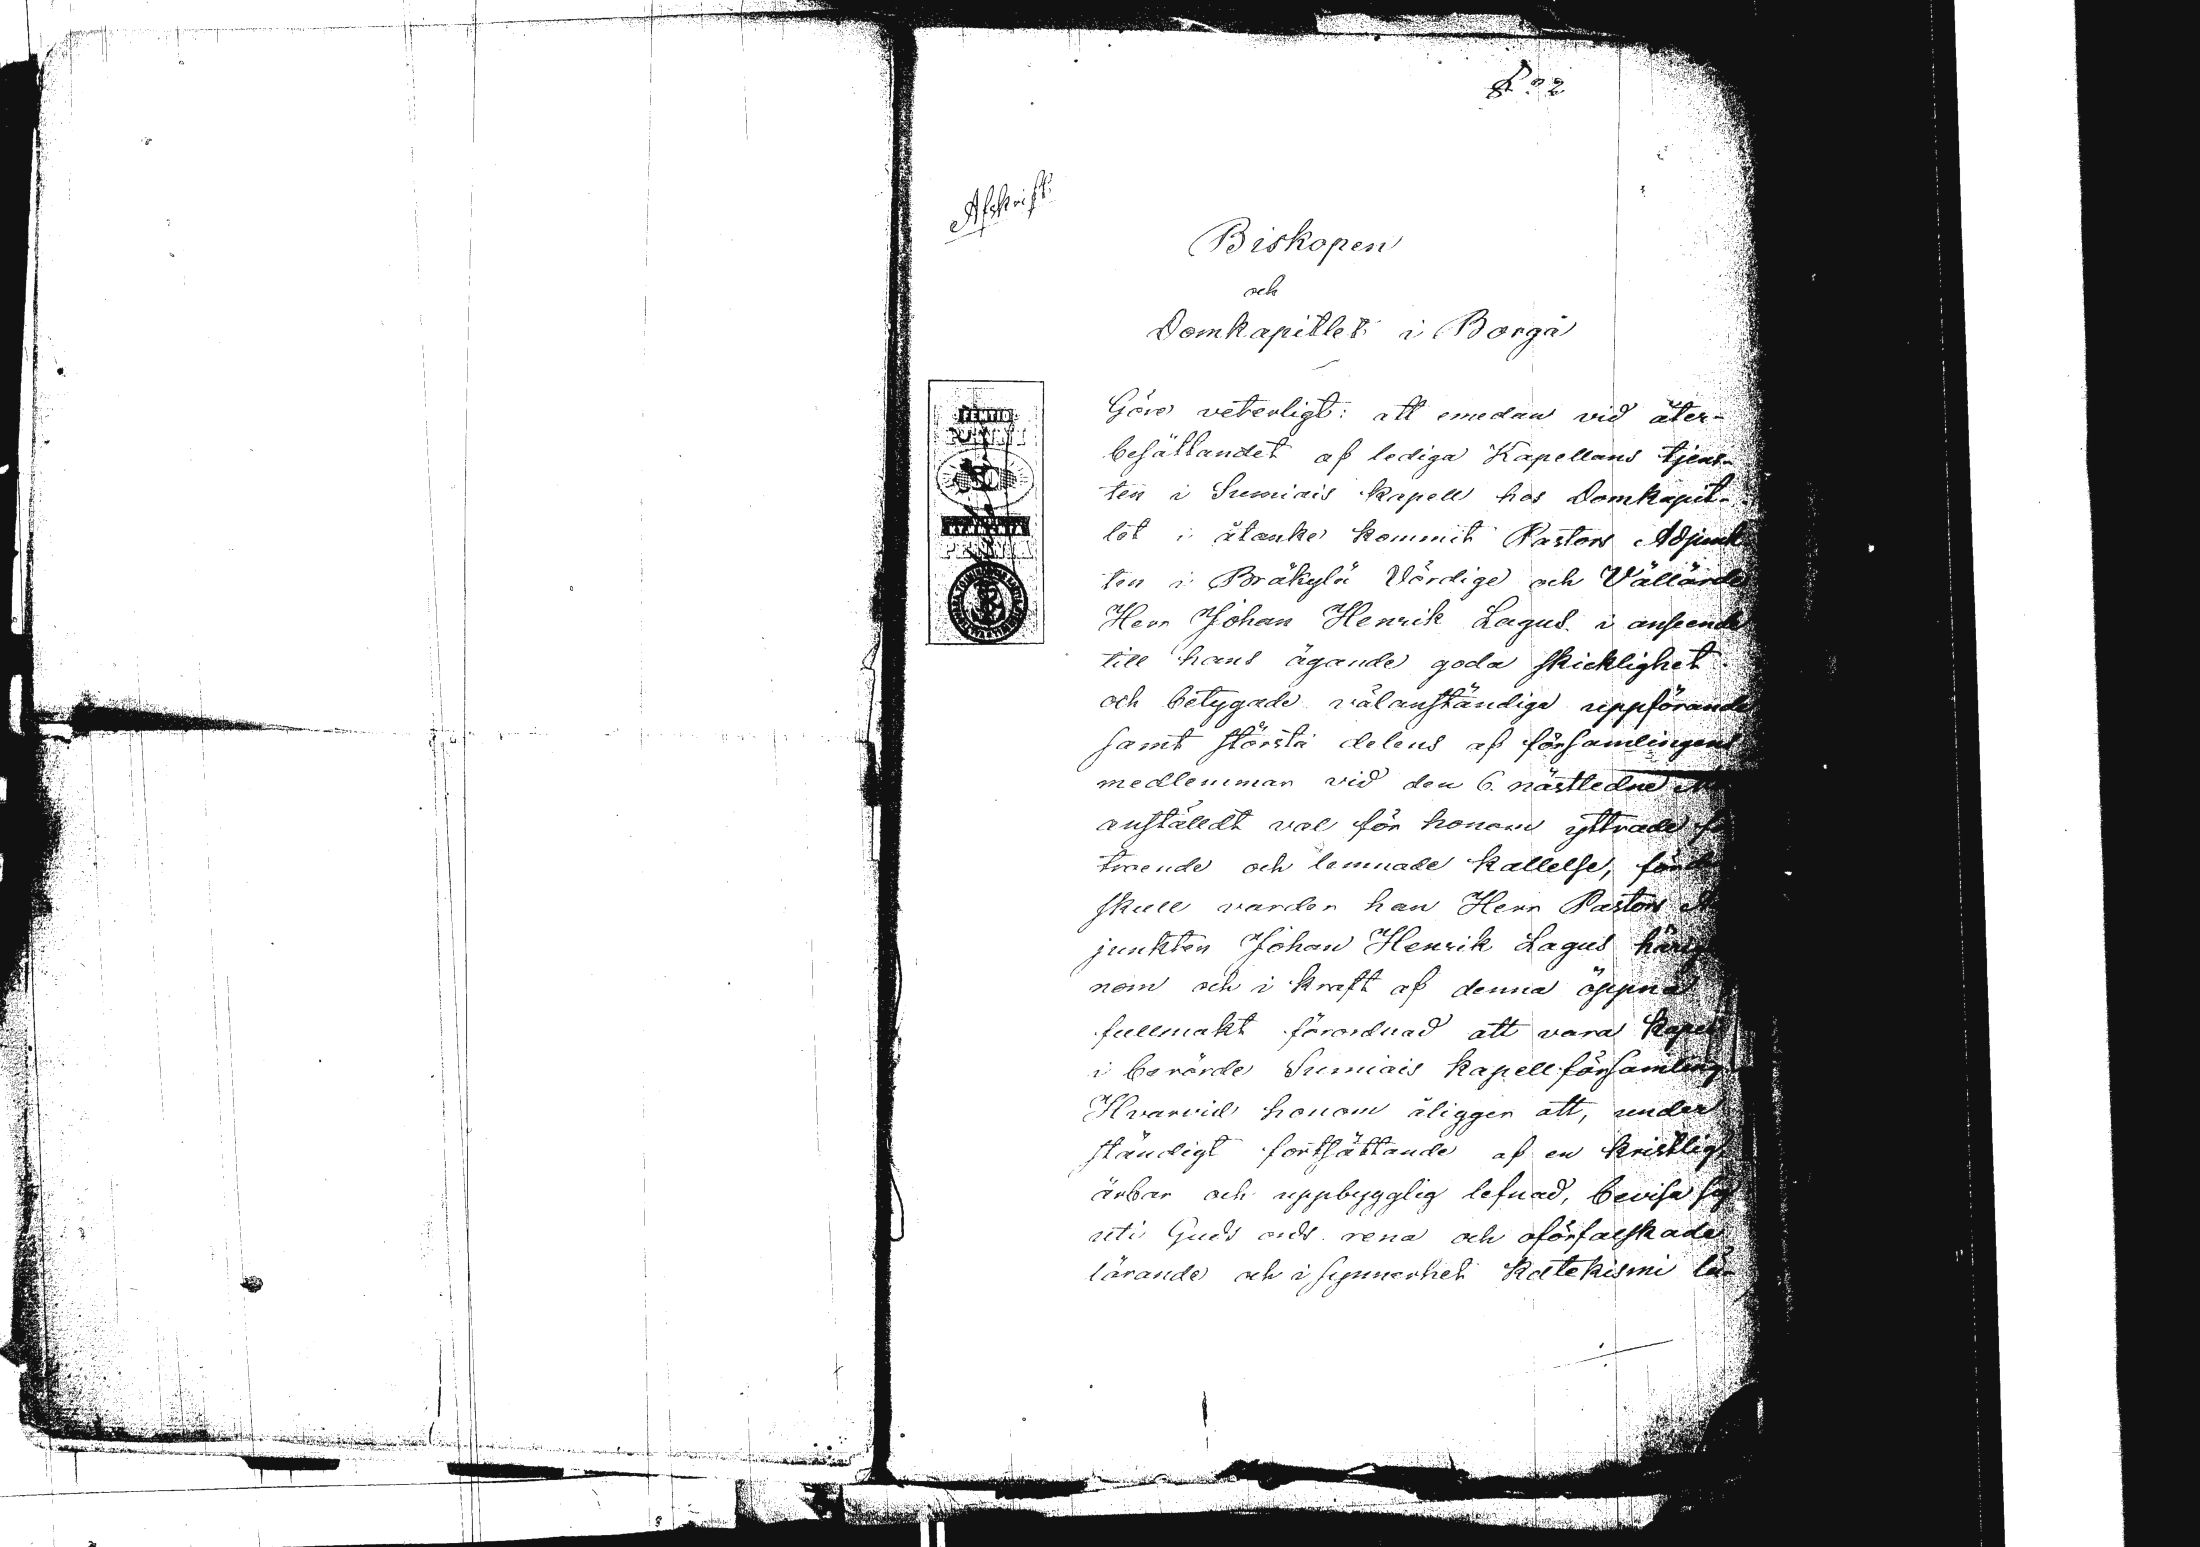 Afskrift.
Biskopen
och
Domkapitlet i Borgå
FEMTIO
PENNIÄ
50
KYMMENTÄ
PENNIÄ
Göra veterligt: att emedan vid åter-
besättandet af lediga Kapellans tjens-
ten i Sumiais kapell hos Domkapit-
let i åtanke kommit Pastors Adjunk
ten i Bräkylä Vördige och Vällärde
Herr Johan Henrik Lagus i anseende
till hans ägande goda skicklighet
och betygade välanständiga uppförande
samt största delens af församlingens
medlemmar vid den 6. nästledne
anstäldt val för honom yttrade
troende och lemnade kallelse,
skull varder han Herr Pastors
junkten Johan Henrik Lagus härige
nom och i kraft af denna öppna
fullmakt förordnad att vara
i berörde Sumiais kapellförsamling
Hvarvid honom åligger att, under
ständigt fortsättande af en kristlig
ärbar och uppbygglig lefnad, bevisa sig
uti Guds ords rena och oförfalskade
lärande och i synnerhet Katekismi lä-